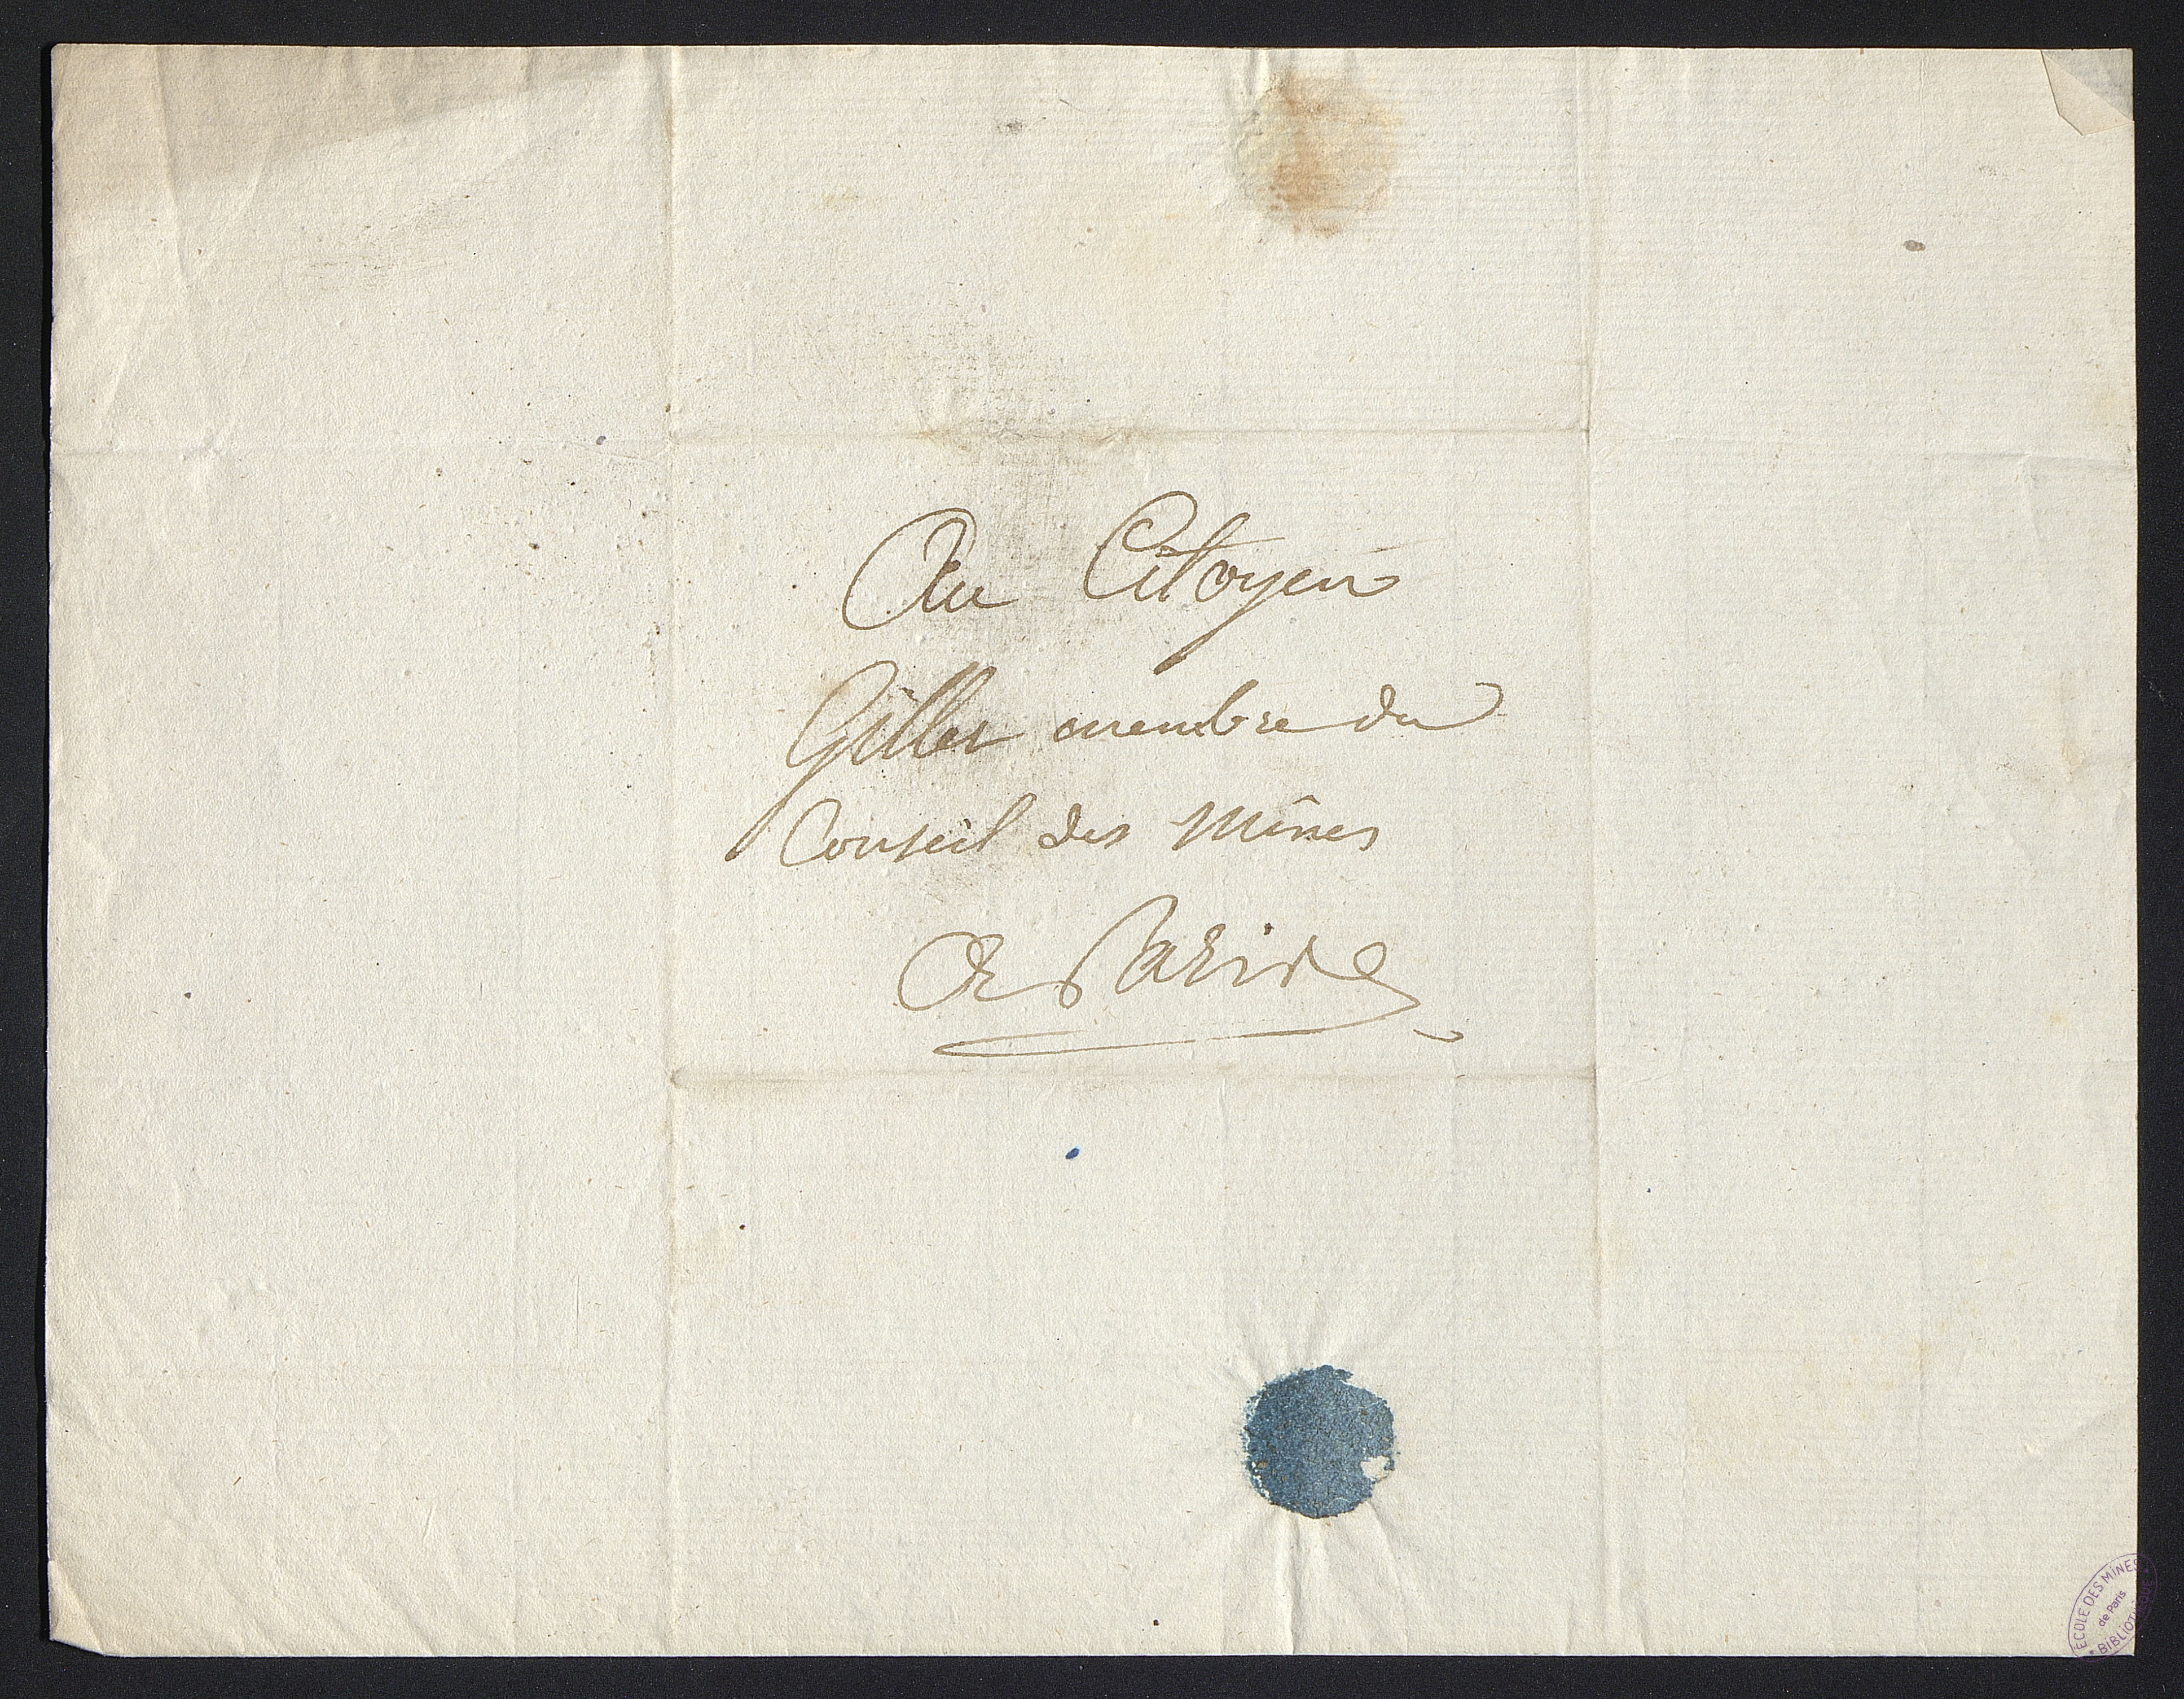 Au Citoyen
Gillet membre du
Conseil des Mines
A Paris
ÉCOLE DES MINES
de Paris
* BIBLIOTHÈQUE *